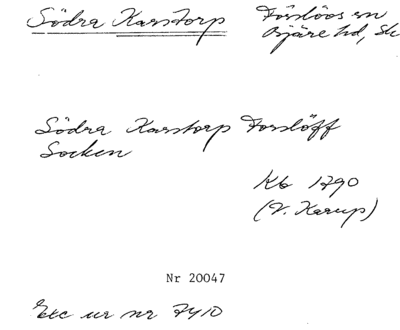 Södra Karstorp Förslövs sn
Bjäre hd, Sk
Södra Karstorp Forslöff
Socken
Kb 1790
(V. Karup)
Nr 20047
Exc ur nr 7410